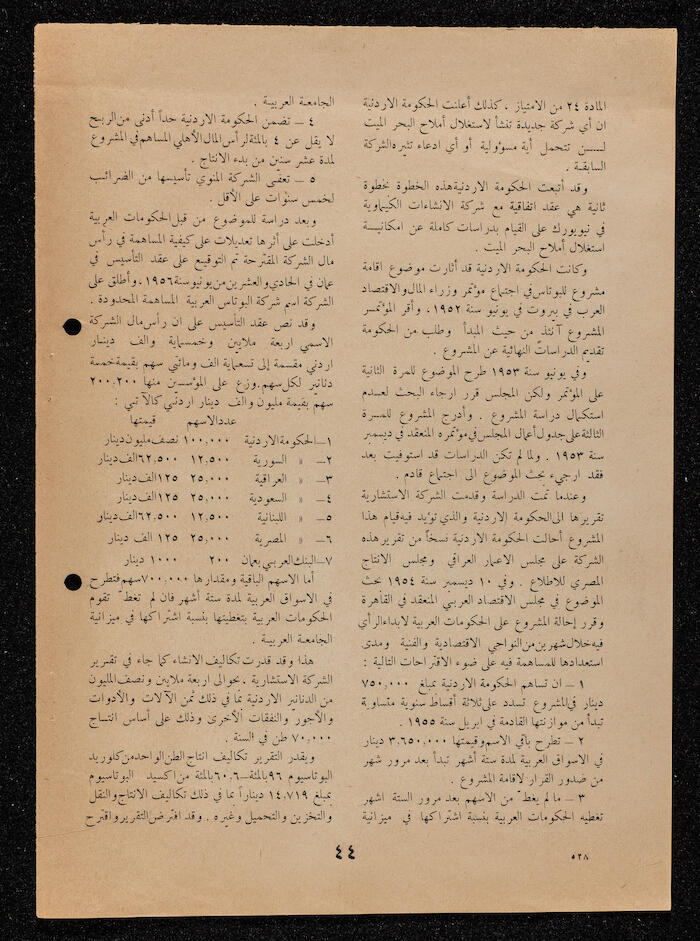 المادة ٢٤ من الامتياز . كذلك أعلنت الحكومة الاردنية
ان أي شركة جديدة تنشأ لاستغلال أملاح البحر الميت
لـــن تتحمل أية مسؤولية أو أي ادعاء تثيره الشركة
السابقة .
وقد أتبعت الحكومة الاردنية هذه الخطوة بخطوة
ثانية هي عقد اتفاقية مع شركة الانشاءات الكيماوية
في نيويورك على القيام بدراسات كاملة عن امكانيــة
استغلال أملاح البحر الميت .
وكانت الحكومة الاردنية قد أثارت موضوع اقامة
مشروع للبوتاس في اجتماع مؤتمر وزراء المال والاقتصاد
العرب في بيروت في يونيو سنة ١٩٥٢، وأقر المؤتمر
المشروع آنئذ من حيث المبدأ وطلب من الحكومة
تقديم الدراسات النهائية عن المشروع .
وفي يونيو سنة ١٩٥٣ طرح الموضوع للمرة الثانية
على المؤتمر ولكن المجلس قرر ارجاء البحث لعــدم
استكمال دراسة المشروع . وأدرج المشروع للمــرة
الثالثة على جدول أعمال المجلس في مؤتمره المنعقد في ديسمبر
سنة ١٩٥٣ . ولما لم تكن الدراسات قد استوفيت بعد
فقد ارجىء بحث الموضوع الى اجتماع قادم .
وعندما تمت الدراسة وقدمت الشركة الاستشارية
تقريرها الى الحكومة الاردنية والذي تؤيد فيه قيام هذا
المشروع أحالت الحكومة الاردنية نسخاً من تقرير هذه
الشركة على مجلس الاعمار العراقي ومجلس الانتاج
المصري للاطلاع . وفي ١٠ ديسمبر سنة ١٩٥٤ بحث
الموضوع في مجلس الاقتصاد العربي المنعقد في القاهرة
وقرر إحالة المشروع على الحكومات العربية لابداء الرأي
فيه خلال شهرين من النواحي الاقتصادية والفنية ومدى
استعدادها للمساهمة فيه على ضوء الاقتراحات التالية :
١ – ان تساهم الحكومة الاردنية بمبلغ ٧٥٠,٠٠٠
دينار في المشروع تسدد على ثلاثة أقساط سنوية متساوية
تبدأ من موازنتها القادمة في ابريل سنة ١٩٥٥ .
٢ – تطرح باقي الاسهم وقيمتها ٣,٦٥٠,٠٠٠ دينار
في الاسواق العربية لمدة ستة أشهر تبدأ بعد مرور شهر
من صدور القرار لاقامة المشروع .
٣ – ما لم يغطّ من الاسهم بعد مرور الستة اشهر
تغطيه الحكومات العربية بنسبة اشتراكها في ميزانية
الجامعة العربية .
٤ – تضمن الحكومة الاردنية حداً أدنى من الربح
لا يقل عن ٤ بالمئة لرأس المال الأهلي المساهم في المشروع
لمدة عشر سنين من بدء الانتاج .
٥ – تعفى الشركة المنوي تأسيسها من الضرائب
لخمس سنوات على الأقل .
وبعد دراسة للموضوع من قبل الحكومات العربية
أدخلت على أثرها تعديلات على كيفية المساهمة في رأس
مال الشركة المقترحة تم التوقيع على عقد التأسيس في
عمان في الحادي والعشرين من يونيو سنة ١٩٥٦، وأطلق على
الشركة اسم شركة البوتاس العربية المساهمة المحدودة .
وقد نص عقد التأسيس على ان رأس مال الشركة
الاسمي اربعة ملايين وخمسماية والف دينــار
اردني مقسمة إلى تسعماية الف ومائتي سهم بقيمة خمسة
دنانير لكل سهم. وزع على المؤسسين منها ٢٠٠,٢٠٠
سهم بقيمة مليون والف دينار اردني كالآتي :
عدد الاسهم قيمتها
١– الحكومة الاردنية ١٠٠,٠٠٠ نصف مليون دينار
٢– » السورية ١٢,٥٠٠ ٦٢,٥٠٠ الف دينار
٣– » العراقية ٢٥,٠٠٠ ١٢٥ الف دينار
٤– » السعودية ٢٥,٠٠٠ ١٢٥ الف دينار
٥– » اللبنانية ١٢,٥٠٠ ٦٢,٥٠٠ الف دينار
٦– » المصرية ٢٥,٠٠٠ ١٢٥ الف دينار
٧– البنك العربي بعمان ٢٠٠ ١٠٠٠ دينار
أما الاسهم الباقية ومقدارها ٧٠٠,٠٠٠ سهم فتطرح
في الاسواق العربية لمدة ستة أشهر فان لم تغطّ تقوم
الحكومات العربية بتغطيتها بنسبة اشتراكها في ميزانية
الجامعة العربية .
هذا وقد قدرت تكاليف الانشاء كما جاء في تقرير
الشركة الاستشارية . بحوالى اربعة ملايين ونصف المليون
من الدنانير الاردنية بما في ذلك ثمن الآلات والأدوات
والأجور والنفقات الأخرى وذلك على أساس انتــاج
٧٠,٠٠٠ طن في السنة .
ويقدر التقرير تكاليف انتاج الطن الواحد من كلوريد
البوتاسيوم ٩٦ بالمئة – ٦٠,٦ بالمئة من اكسيد البوتاسيوم
بمبلغ ١٤,٧١٩ ديناراً بما في ذلك تكاليف الانتاج والنقل
والتخزين والتحميل وغيره . وقد افترض التقرير واقترح
٤٤
٥٢٨